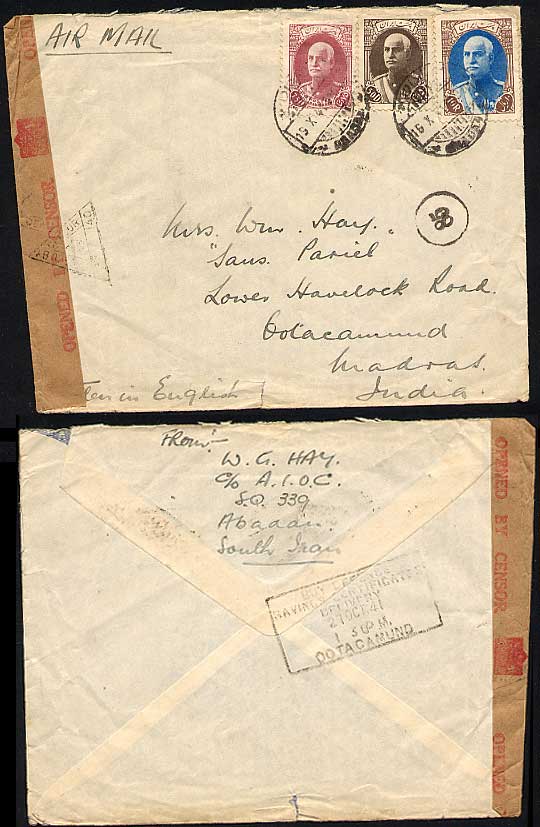 AIR MAIL
Mrs. Wm. Hay.
"Sans Pariel
Lower Havelock Road.
Ootacamund
Madras.
India.
in English
OPENED BY CENSOR
10R
From:-
W. G. HAY.
c/o A.I.O.C.
S.Q. 339
Abadan.
South Iran
BUY DEFENCE
SAVINGS CERTIFICATES
DELIVERY
21 OCT 41
1 30 P.M.
OOTACAMUND
OPENED BY CENSOR
OPENED